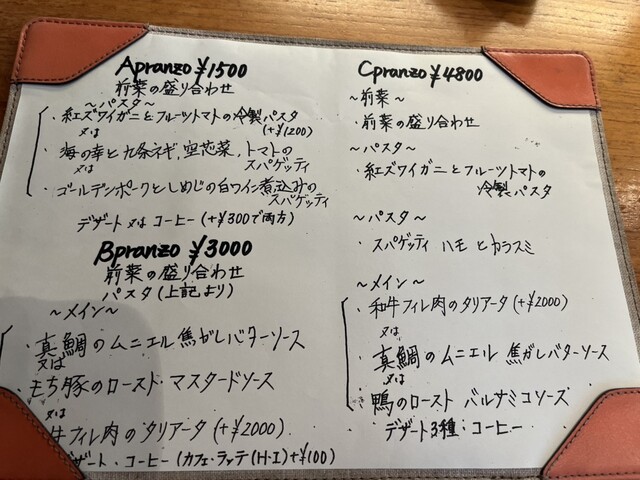 Apranzo ¥1500
前菜の盛り合わせ
～パスタ～
・紅ズワイガニとフルーツトマトの冷製パスタ
又は (+¥1200)
・海の幸と九条ネギ、空芯菜、トマトの
又は スパゲッティ
・ゴールデンポークとしめじの白ワイン煮込みの
スパゲッティ
デザート 又は コーヒー (+¥300で両方)
Bpranzo ¥3000
前菜の盛り合わせ
パスタ (上記より)
～メイン～
・真鯛のムニエル焦がしバターソース
又は
・もち豚のロースト・マスタードソース
又は
牛フィレ肉のタリアータ (+¥2000)
デザート・コーヒー (カフェ・ラッテ(H・I)+¥100)
Cpranzo ¥4800
～前菜～
・前菜の盛り合わせ
～パスタ～
・紅ズワイガニとフルーツトマトの
冷製パスタ
～パスタ～
・スパゲッティ ハモ と カラスミ
～メイン～
・和牛フィレ肉のタリアータ (+¥2000)
又は
・真鯛のムニエル 焦がしバターソース
又は
・鴨のロースト バルサミコソース
デザート3種:コーヒー